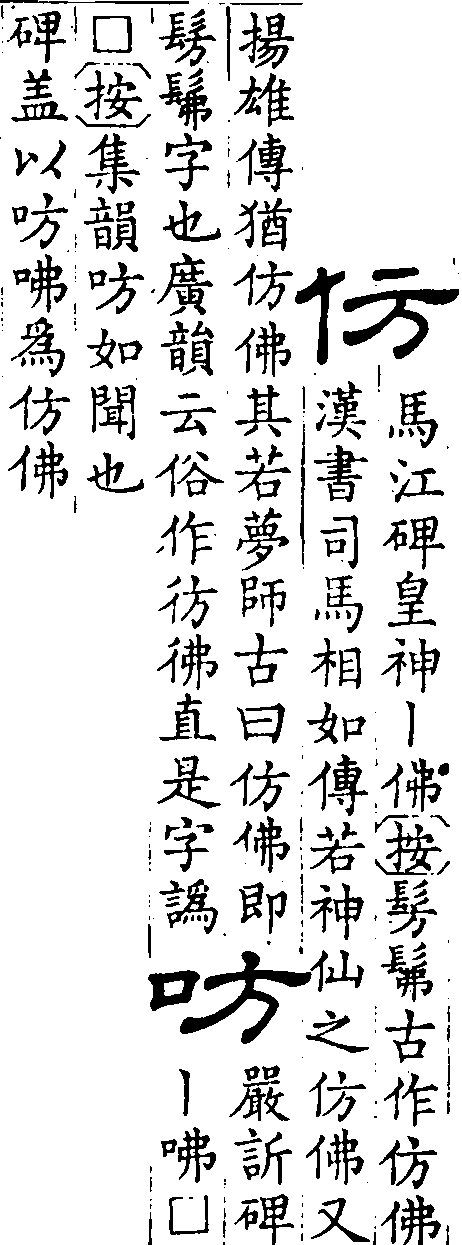 仿
馬江碑皇神丨佛按髣髴古作仿佛
漢書司馬相如傳若神仙之仿佛又
揚雄傳猶仿佛其若夢師古曰仿佛即
髣髴字也廣韻云俗作彷彿直是字譌
㕫
嚴訢碑
丨咈□
□按集韻㕫如聞也
碑盖以㕫咈爲仿佛